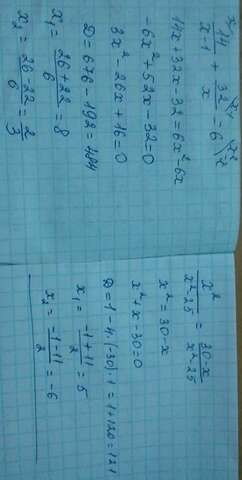 14/(x-1) + 32/x = 6
14x+32x-32=6x²-6x
-6x²+52x-32=0
3x²-26x+16=0
D=676-192=484
x₁=(26+22)/6=8
x₂=(26-22)/6=2/3
x²/(x²-25) = (30-x)/(x²-25)
x²=30-x
x²+x-30=0
D=1-4·(-30)·1=1+120=121
x₁=(-1+11)/2=5
x₂=(-1-11)/2=-6